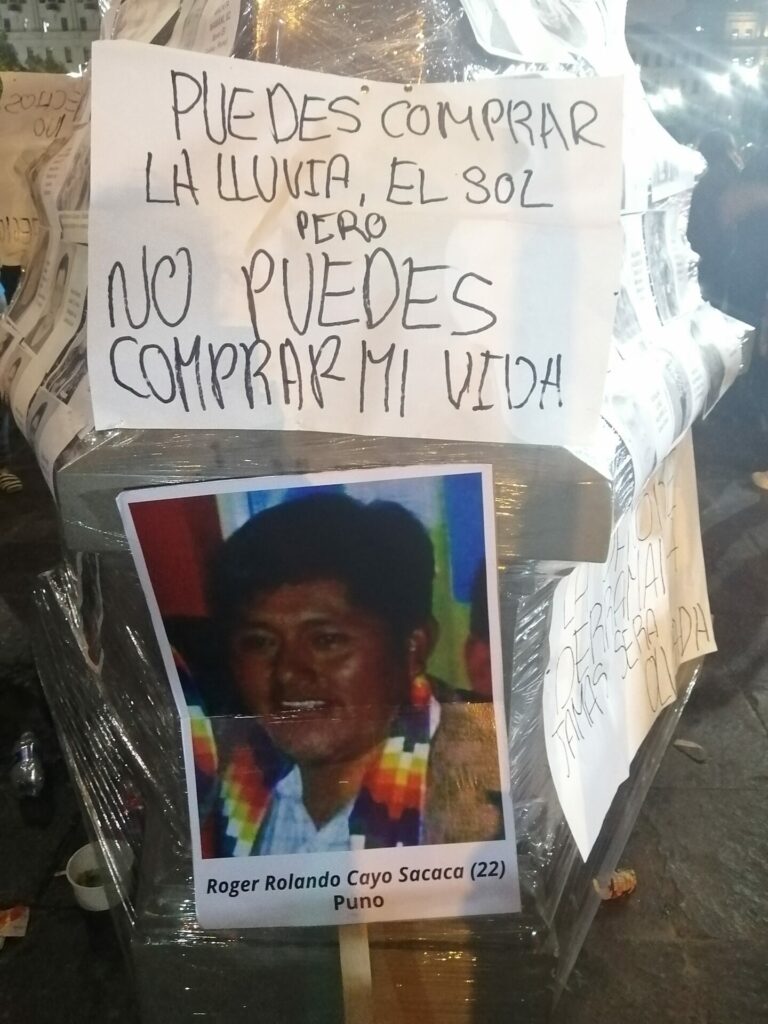 PUEDES COMPRAR
LA LLUVIA, EL SOL
PERO
NO PUEDES
COMPRAR MI VIDA
Roger Rolando Cayo Sacaca (22)
Puno
DERRAMA
JAMAS SERA
OLVIDADA